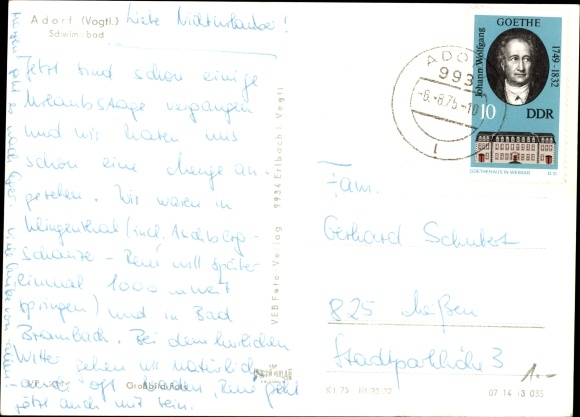 Adorf (Vogtl.)
Schwimmbad
Liebe Nichturlauber!
Jetzt sind schon einige
Urlaubstage vergangen
und wir haben uns
schon eine Menge an-
gesehen. Wir waren in
Klingenthal (incl. Aschberg-
schanze - René will später
einmal 1000 m weit
springen) und in Bad
Brambach. Bei dem herrlichen
Wetter gehen wir natürlich
auch oft baden, René geht
jetzt auch mit rein.
Großbild-Foto
VEB Foto-Verlag 9934 Erlbach i. Vogtl
ADORF
993
-6.-8.75-10
GOETHE
Johann Wolfgang
1749-1832
10
DDR
GOETHEHAUS IN WEIMAR
Fam.
Gerhard Schubert
825 Meißen
Stadtparkhöhe 3
1.-
07 14 13 035